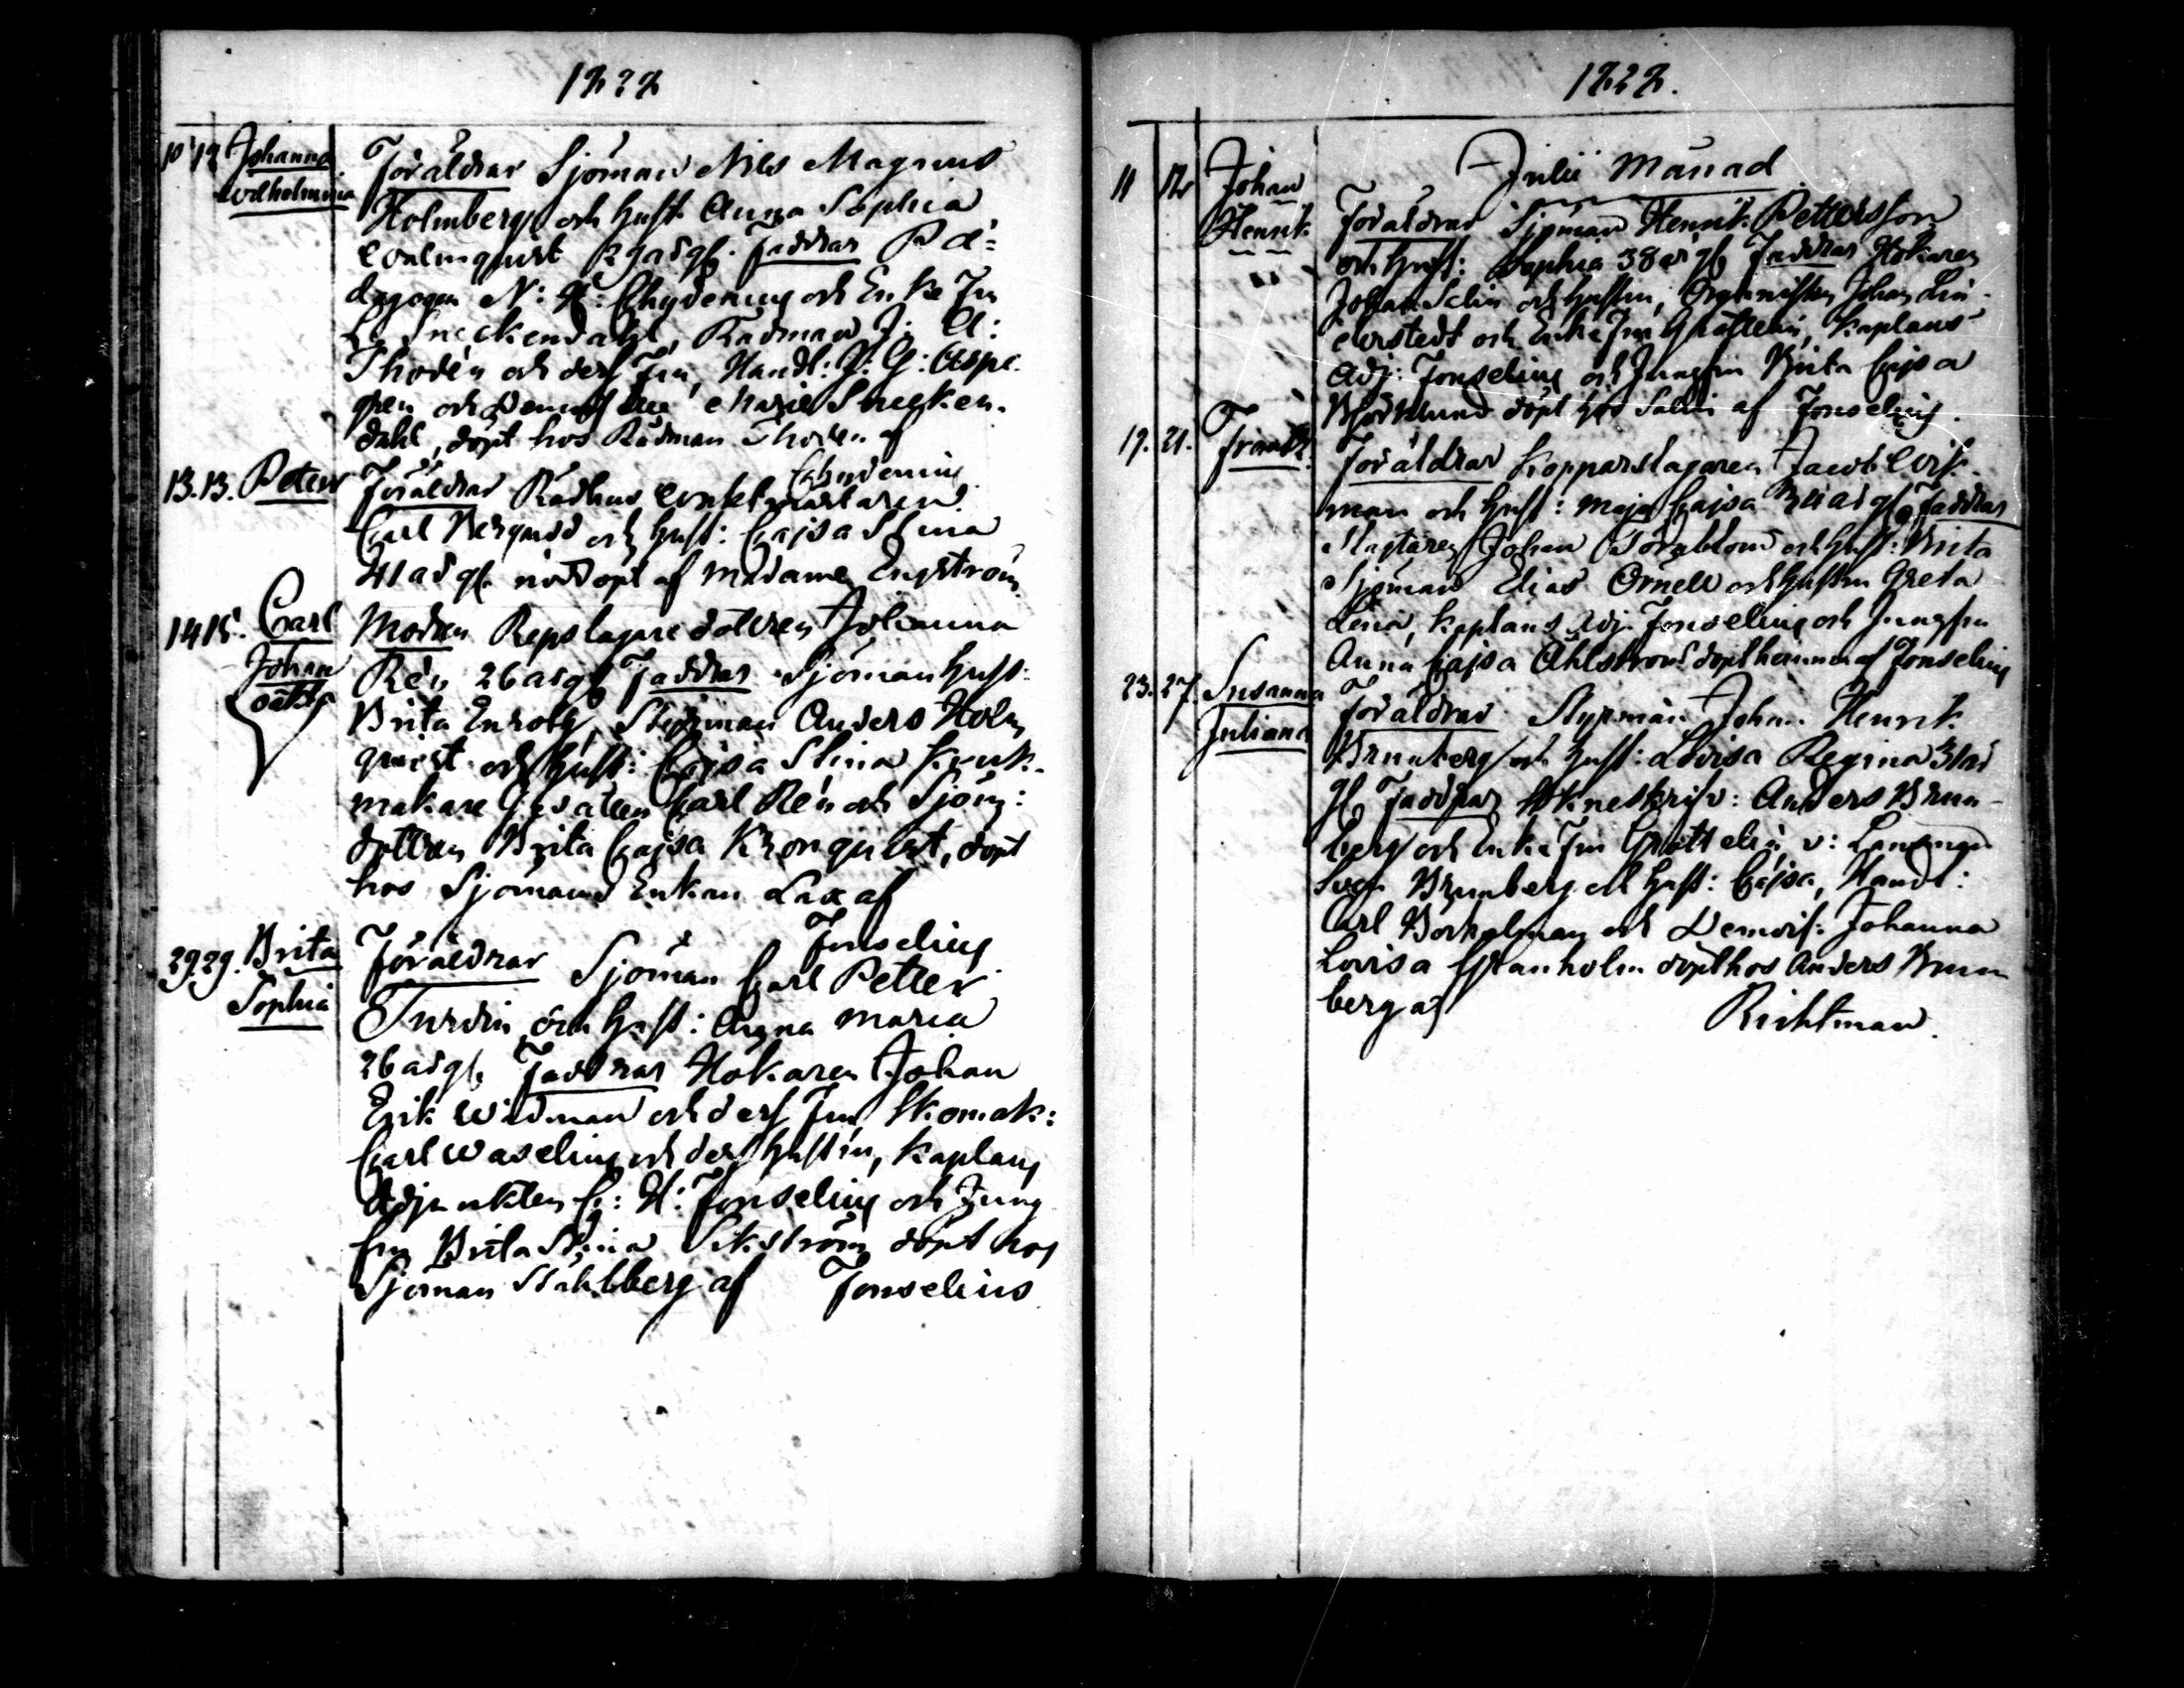 1822
10 12 Johanna Föräldrar Sjöman Nils Magnus
Wilhelmina Holmberg och hust. Anna Sophia
Malmquist årgl. faddrar Pä-
dagogen N: H: Chydenius och Enke Fru
Sneckendahl, Rådman J: A:
Thodén och dess Fru, Handl: J: G: Aspe-
gren och Demois Marie Snecken-
dahl, döpt hos Rådman Thodén af
Chydenius
13. 13. Peter Föräldrar Rådhus
Carl Bergudd och hust: Cajsa Stina
41 årgl. nöddöpt af Madame Engström
14 15. Carl Modren Repslagare dottren Johanna
Johan Rén 26 årgl Faddrar Sjöman hust:
oäkta Brita Enroth, Styrman Anders Holm
quist och hust: Cajsa Stina Kruk-
makare Gesällen Carl Rén och Sjöm:
dottren Brita Cajsa Kronquist, döpt
hos Sjömans Enkan Lax af
Jonselius
29 29. Brita Föräldrar Sjöman Carl Petter
Sophia Turdin och hust: Anna Maria
26 årgl. Faddrar Hökaren Johan
Erik Widman och dess Fru, Skomak:
Carl Waselius och dess hustru, Kaplans
Adjunkten C: H: Jonselius och Jung
fru Brita Stina Sikström döpt hos
Sjöman Stahlberg af Jonselius
1822.
Julii Månad
11 12 Johan Föräldrar Sjöman Henrik Pettersson
Henrik och hust: Sophia 38 årgl Faddrar Hökaren
Johan Selin och hustru, Organisten Johan Lin-
derstedt och Enke Fru Kaplans
Adj: Jonselius och Jungfru Brita Cajsa
Björklund döpt hos Selin af Jonselius.
19. 21. Frantz. Föräldrar Kopparslagaren Jacob Wik-
man och hust: Maja Cajsa årgl, Faddrar
Slagtaren Johan Törnblom och hust: Brita
Sjöman Elias Örnell och hustru Greta
Lena, Kaplans Adj. Jonselius och Jungfru
Anna Cajsa Åhlström döpt hemma af Jonselius
23. 27. Susanna Föräldrar Styrman Johan Henrik
Juliana Brunberg och hust: Lovisa Regina 31 år
gl. Faddrar Anders Brun-
berg och Enke Fru v:
Brunberg och hust: Cajsa, Handl:
Carl Borholman och Demois: Johanna
Lovisa Granholm döpt hos Anders Brun
berg af Richtman.